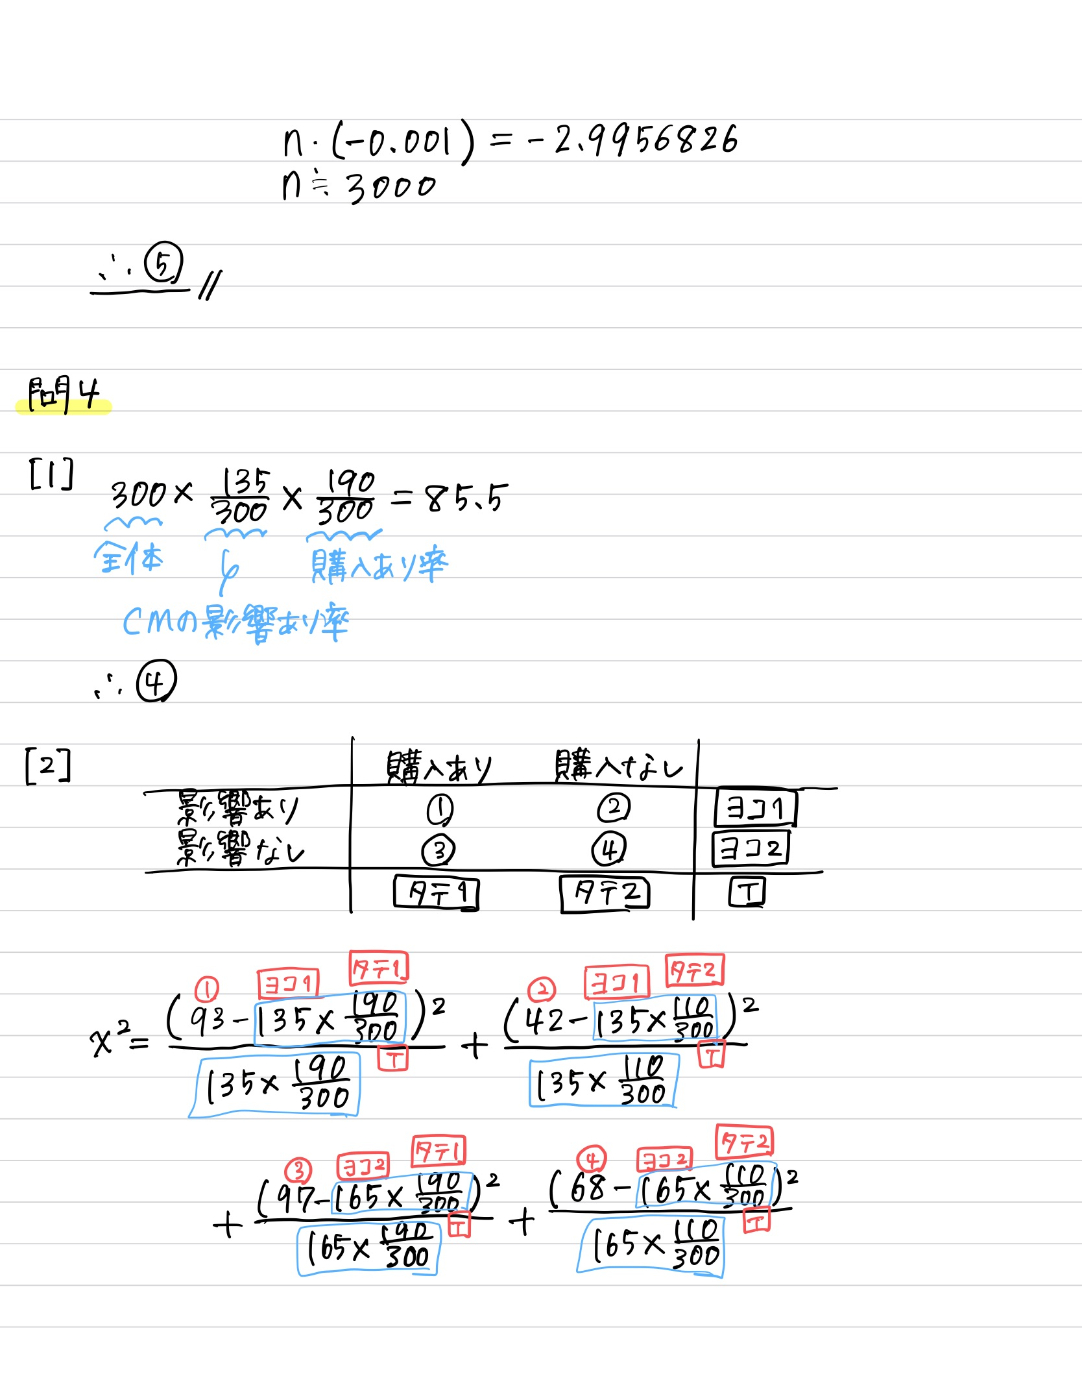 n・(-0.001) = -2.9956826
n≒3000
∴⑤//
問4
[1] 300 × 135/300 × 190/300 = 85.5
全体 購入あり率
CMの影響あり率
∴④
[2] 購入あり 購入なし
影響あり ① ② ヨコ1
影響なし ③ ④ ヨコ2
タテ1 タテ2 T
① ヨコ1 タテ1 ② ヨコ1 タテ2
x² = (93-135×190/300)²/(135×190/300) + (42-135×110/300)²/(135×110/300)
T T
③ ヨコ2 タテ1 ④ ヨコ2 タテ2
+ (97-165×190/300)²/(165×190/300) + (68-165×110/300)²/(165×110/300)
T T